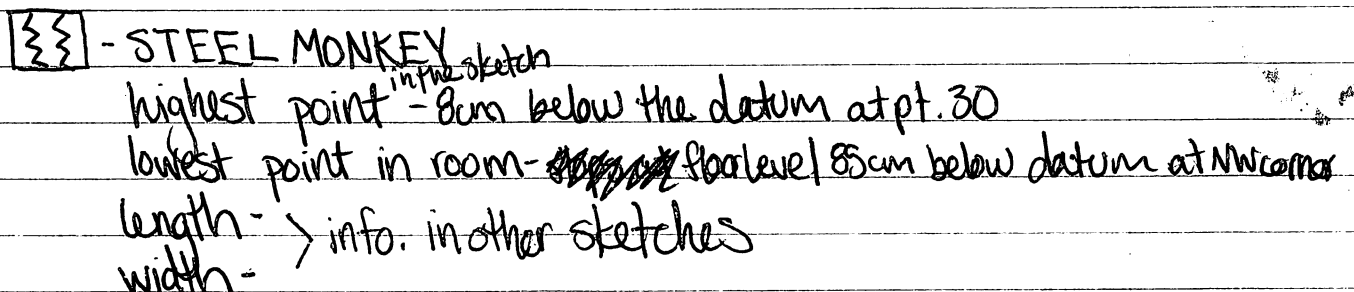 - STEEL MONKEY
highest point in the sketch - 8cm below the datum at pt. 30
lowest point in room - floor level 85cm below datum at NW corner
length -
> info. in other sketches
width -